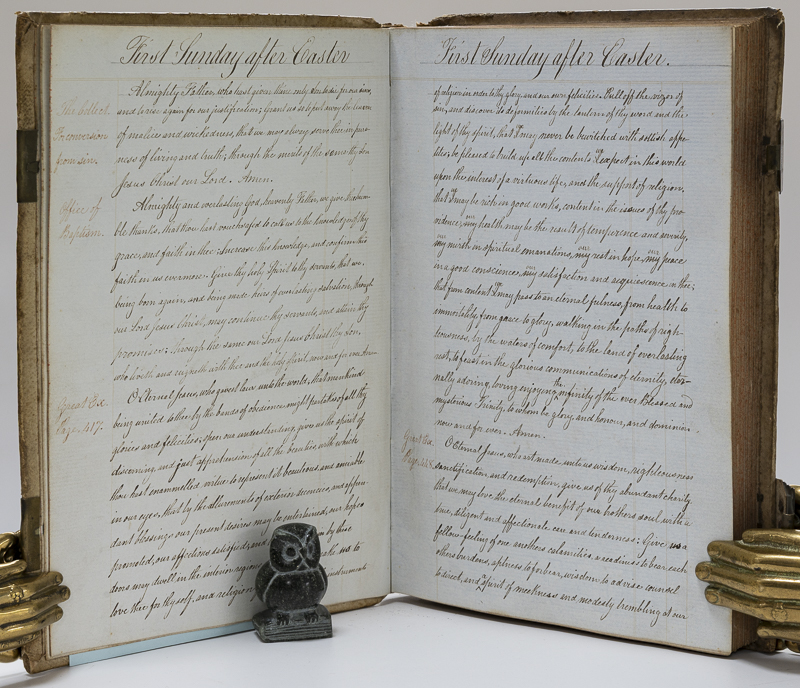 First Sunday after Easter
The Collect.
For conversion
from sin.
Almighty Father, who hast given thine only Son to die for our sins,
and to rise again for our justification; Grant us so to put away the leaven
of malice and wickedness, that we may alway serve thee in pure-
ness of living and truth; through the merits of the same thy Son
Jesus Christ our Lord. Amen.
Office of
Baptism.
Almighty and everlasting God, heavenly Father, we give thee hum-
ble thanks, that thou hast vouchsafed to call us to the knowledge of thy
grace, and faith in thee: Increase this knowledge, and confirm this
faith in us evermore. Give thy holy Spirit to thy servants, that we,
being born again, and being made heirs of everlasting salvation, through
our Lord Jesus Christ, may continue thy servants, and attain thy
promises: through the same our Lord Jesus Christ thy Son,
who liveth and reigneth with thee and the holy Spirit, now and for ever. Amen
Great Ex.
Page 417.
O Eternal Jesus, who gavest laws unto the world, that mankind
being united to thee by the bands of obedience might partake of all thy
glories and felicities; open our understanding, give us the spirit of
discerning, and just apprehension of all the beauties with which
thou hast enammelled virtue to represent it beauteous and amiable
in our eyes, that by the allurements of exterior decencies, and appen-
dant blessings our present desires may be entertained, our hopes
promoted, our affections satisfied, and by these
doors may dwell in the interior regions us to
love thee for thyself, and religion instruments
First Sunday after Easter.
of religion in order to thy glory and our own felicities. Pull off the vizor of
sin, and discover its deformities by the lantern of thy word and the
light of thy spirit, that I may never be bewitched with sottish appe-
tites; be pleased to build up all the contents we expect in this world
upon the interest of a virtuous life, and the support of religion,
that I may be rich in good works, content in the issues of thy pro-
vidence, my health may be the result of temperance and severity,
my mirth in spiritual emanations, my rest in hope, my peace
in a good conscience, my satisfaction and acquiescence in thee;
that from content I may pass to an eternal fulness, from health to
immortality, from grace to glory, walking in the paths of righ-
teousness, by the waters of comfort, to the land of everlasting
rest, to feast in the glorious communications of eternity, eter-
nally adoring, loving enjoying the infinity of the ever Blessed and
mysterious Trinity, to whom be glory, and honour, and dominion
now and for ever. Amen.
Great Ex.
O Eternal Jesus, who art made unto us wisdom, righteousness
sanctification and redemption, give us of thy abundant charity
that we may love the eternal benefit of our brothers soul, with a
true, diligent and affectionate care and tenderness: Give us a
fellow-feeling of one anothers calamities, a readiness to bear each
others burdens, aptness to forbear, wisdom to advise counsel
to direct, and a spirit of meekness and modesty trembling at our